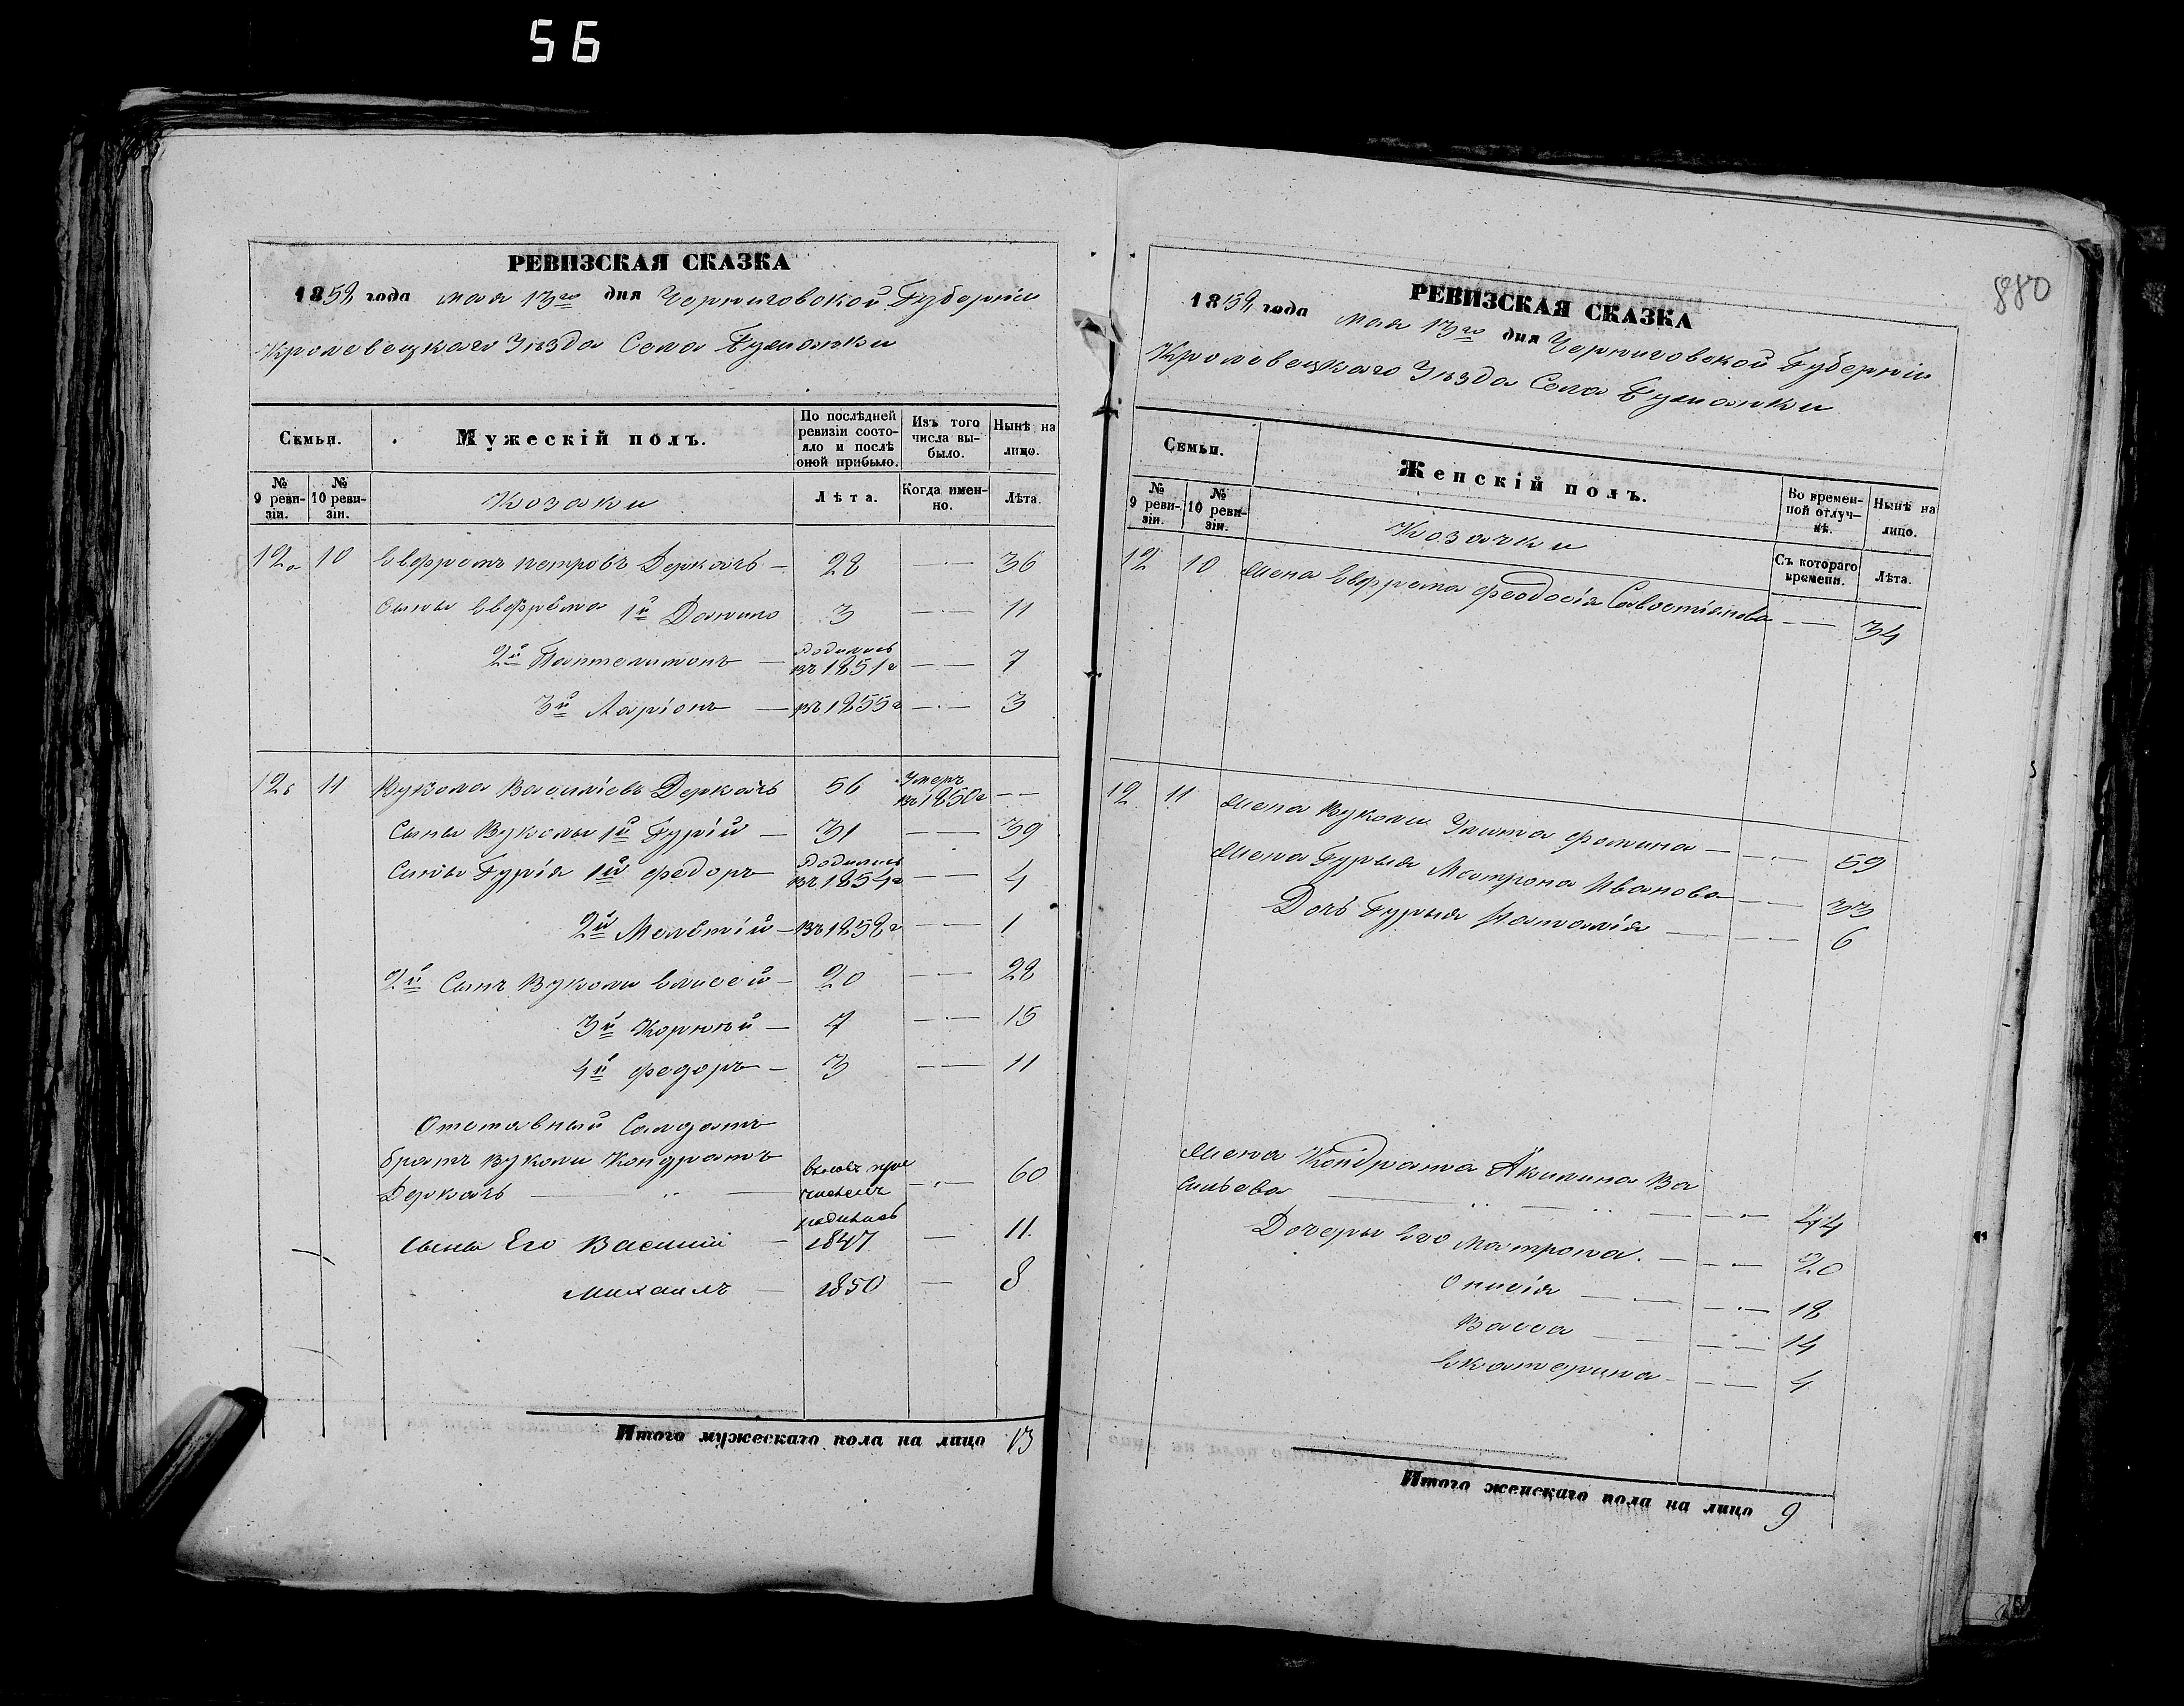 56
РЕВИЗСКАЯ СКАЗКА
1858 года мая 13го дня Черниговской Губерніи
Кролевецкаго Уѣзда Села
Семьи.
Мужескій полъ.
По послѣдней ревизіи состояло и послѣ оной прибыло.
Изъ того числа выбыло.
Нынѣ на лицо.
№ 9 ревизіи.
№ 10 ревизіи.
Козаки
Лѣта.
Когда именно.
Лѣта.
12а 10 Евфремъ Петровъ Деркачъ — 28 — 36
Сыны Евфрема 1й Данило 3 — 11
2й Пантелимонъ — родились въ 1851г — 7
3й Ларіонъ — въ 1855г — 3
12б 11 Вукола Василіевъ Деркачъ 56 Умеръ въ 1850г —
Сыны Вуколы 1й Гурій — 31 — 39
Сыны Гурія 1й Федоръ родились въ 1854г — 4
2й Мелетій — въ 1858г — 1
2й Сынъ Вуколы Елисей — 20 — 28
3й Корнѣй — 7 — 15
4й Федоръ — 3 — 11
Отставный Салдатъ
братъ Вуколы Кондратъ
Деркачъ — 60
Сыны Его Василий — родились 1847 — 11.
Михаилъ — 1850 — 8
Итого мужескаго пола на лицо 13
880
РЕВИЗСКАЯ СКАЗКА
1858 года мая 13го дня Черниговской Губерніи
Кролевецкаго Уѣзда Села
Семьи.
Женскій полъ.
Во временной отлучкѣ.
Нынѣ на лицо.
№ 9 ревизіи.
№ 10 ревизіи.
Козачки
Съ котораго времени.
Лѣта.
12 10 Жена Евфрема Феодосія Савостіянова — 34
12 11 Жена Вуколы Улита Фомина — 59
Жена Гурыя Матрона Иванова — 33
Дочь Гурыя Наталія — 6
Жена Кондрата Акилина Ва
сильева — 44
Дочеры Его Матрона. — 20
Онисія — 18
Васса — 14
Екатерина — 4
Итого женскаго пола на лицо 9